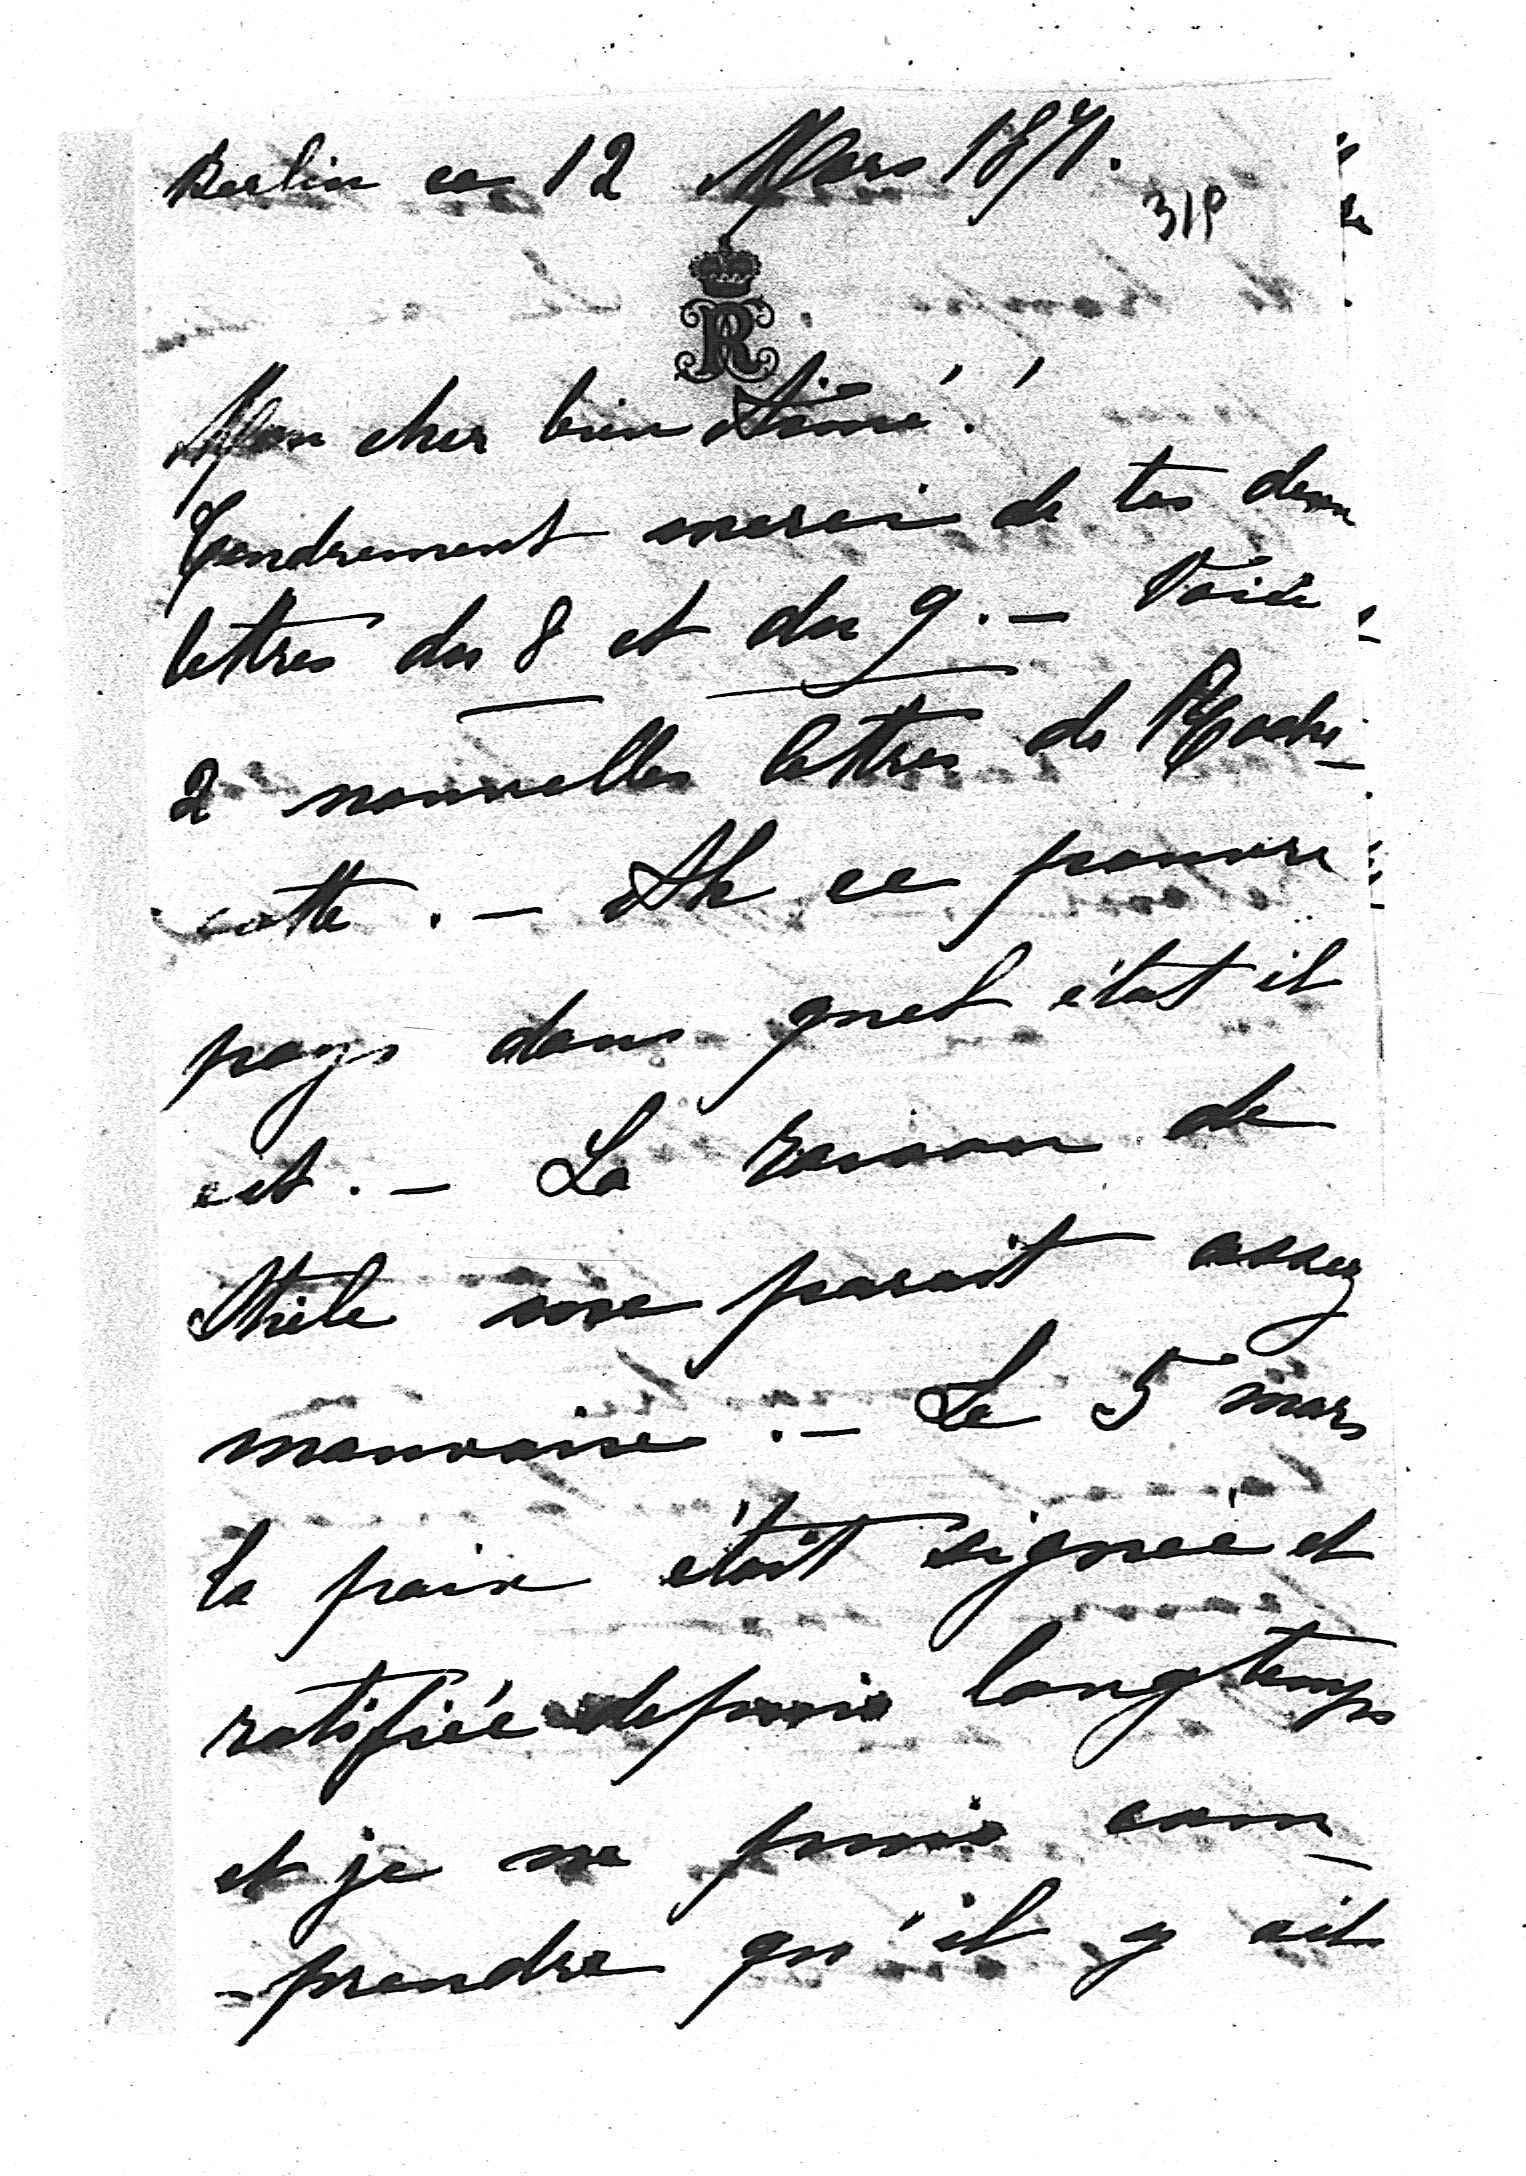 Berlin ce 12 Mars 1871.
319
R
Mon cher bien Aimé!
Tendrement merci de tes deux
lettres du 8 et du 9. – Voici
2 nouvelles lettres de Roche-
cotte. – Ah ce pauvre
pays dans quel état il
est. – La raison de
Thile me parait assez
mauvaise. – Le 5 mars
la paix était signée et
ratifiée depuis longtemps
et je ne puis com-
-prendre qu'il y ait